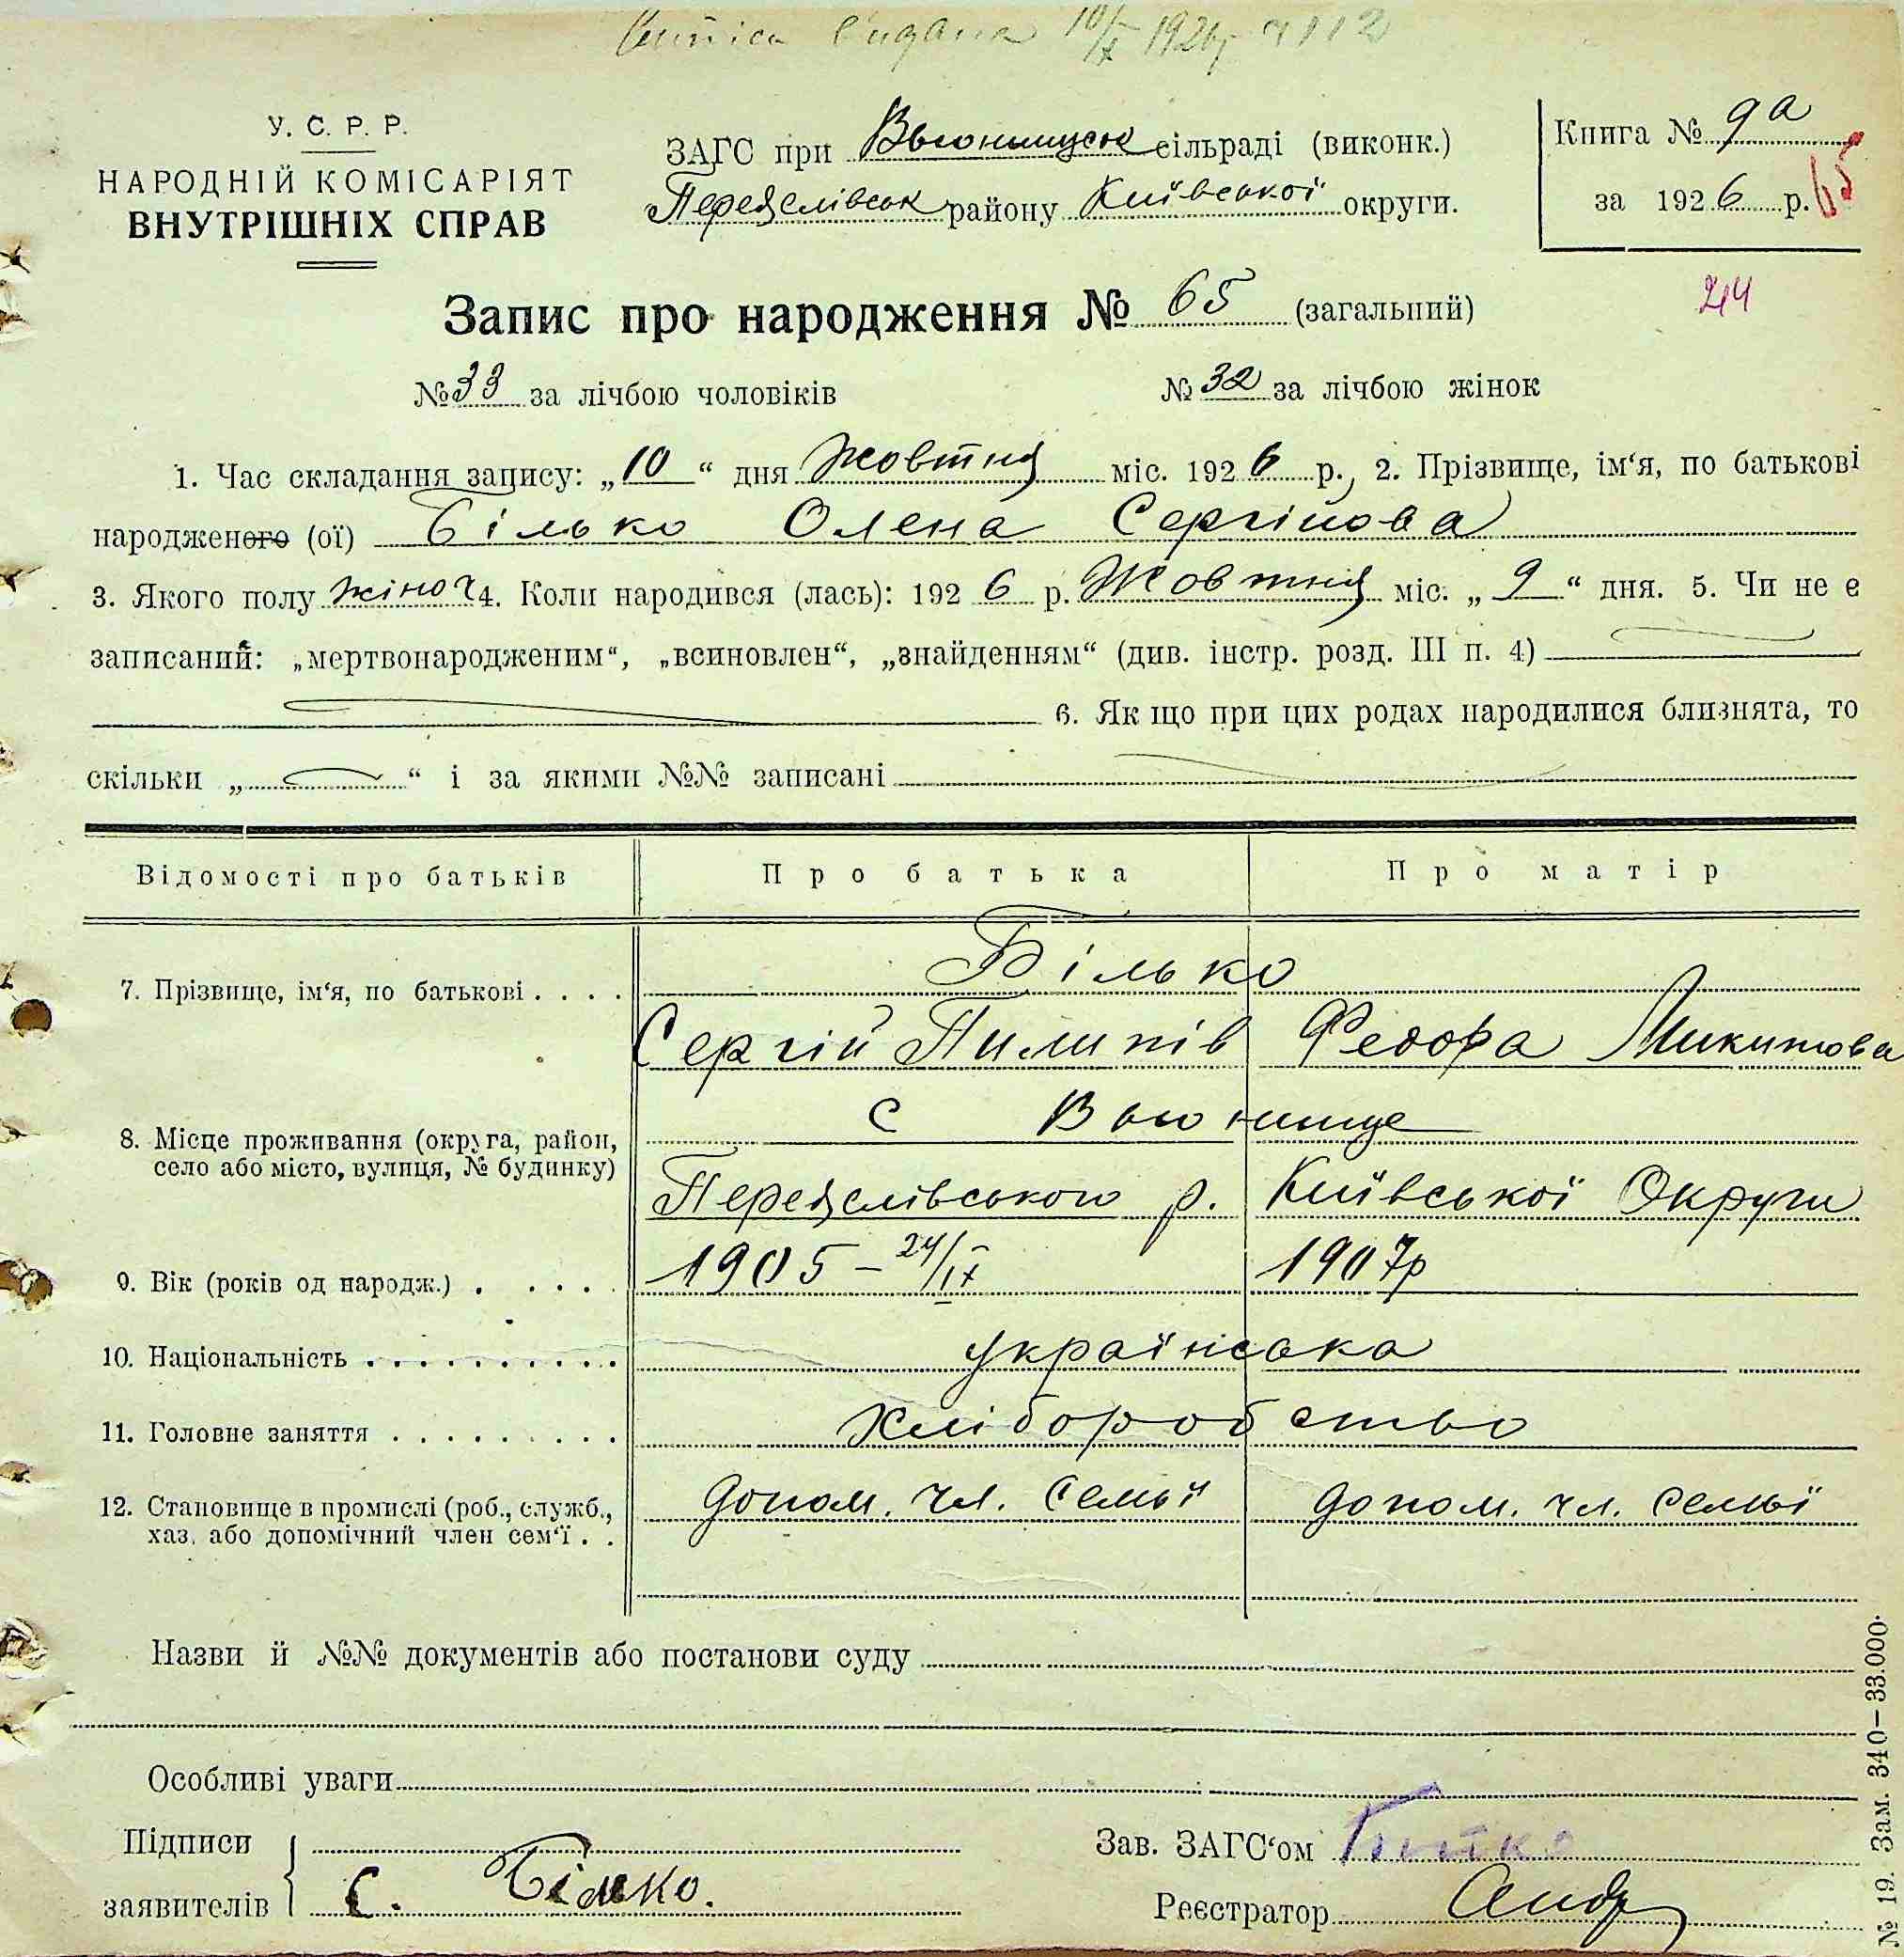 10/X 1926р. 4112
У. С. Р. Р.
НАРОДНІЙ КОМІСАРІЯТ
ВНУТРІШНІХ СПРАВ
ЗАГС при Вьюнищськ сільраді (виконк.)
Переяслівськ району Київської округи.
Книга № 9а
за 1926 р.
65
244
Запис про народження № 65 (загальний)
№ 33 за лічбою чоловіків № 32 за лічбою жінок
1. Час складання запису: „10“ дня Жовтня міс. 1926 р., 2. Прізвище, ім‘я, по батькові
народженого (ої) Білько Олена Сергійова
3. Якого полу жіноч 4. Коли народився (лась): 1926 р. Жовтня міс. „9“ дня. 5. Чи не є
записаний: „мертвонародженим“, „всиновлен“, „знайденням“ (див. інстр. розд. III п. 4)
6. Як що при цих родах народилися близнята, то
скільки „ “ і за якими №№ записані
Відомості про батьків Про батька Про матір
7. Прізвище, ім‘я, по батькові . . . . Білько
Сергій Пилипів Федора Микитова
8. Місце проживання (округа, район, село або місто, вулиця, № будинку) с Вьюнище
Переяслівського р. Київської Округи
9. Вік (років од народж.) . . . . . 1905 – 24/IX 1907р
10. Національність . . . . . . . . . . українська
11. Головне заняття . . . . . . . . . хліборобство
12. Становище в промислі (роб., служб., хаз. або допомічний член сем‘ї . . допом. чл. семьї допом. чл. семьї
Назви й №№ документів або постанови суду
Особливі уваги
Підписи
заявителів С. Білько.
Зав. ЗАГС‘ом
Реєстратор
№ 19. Зам. 340—33.000.